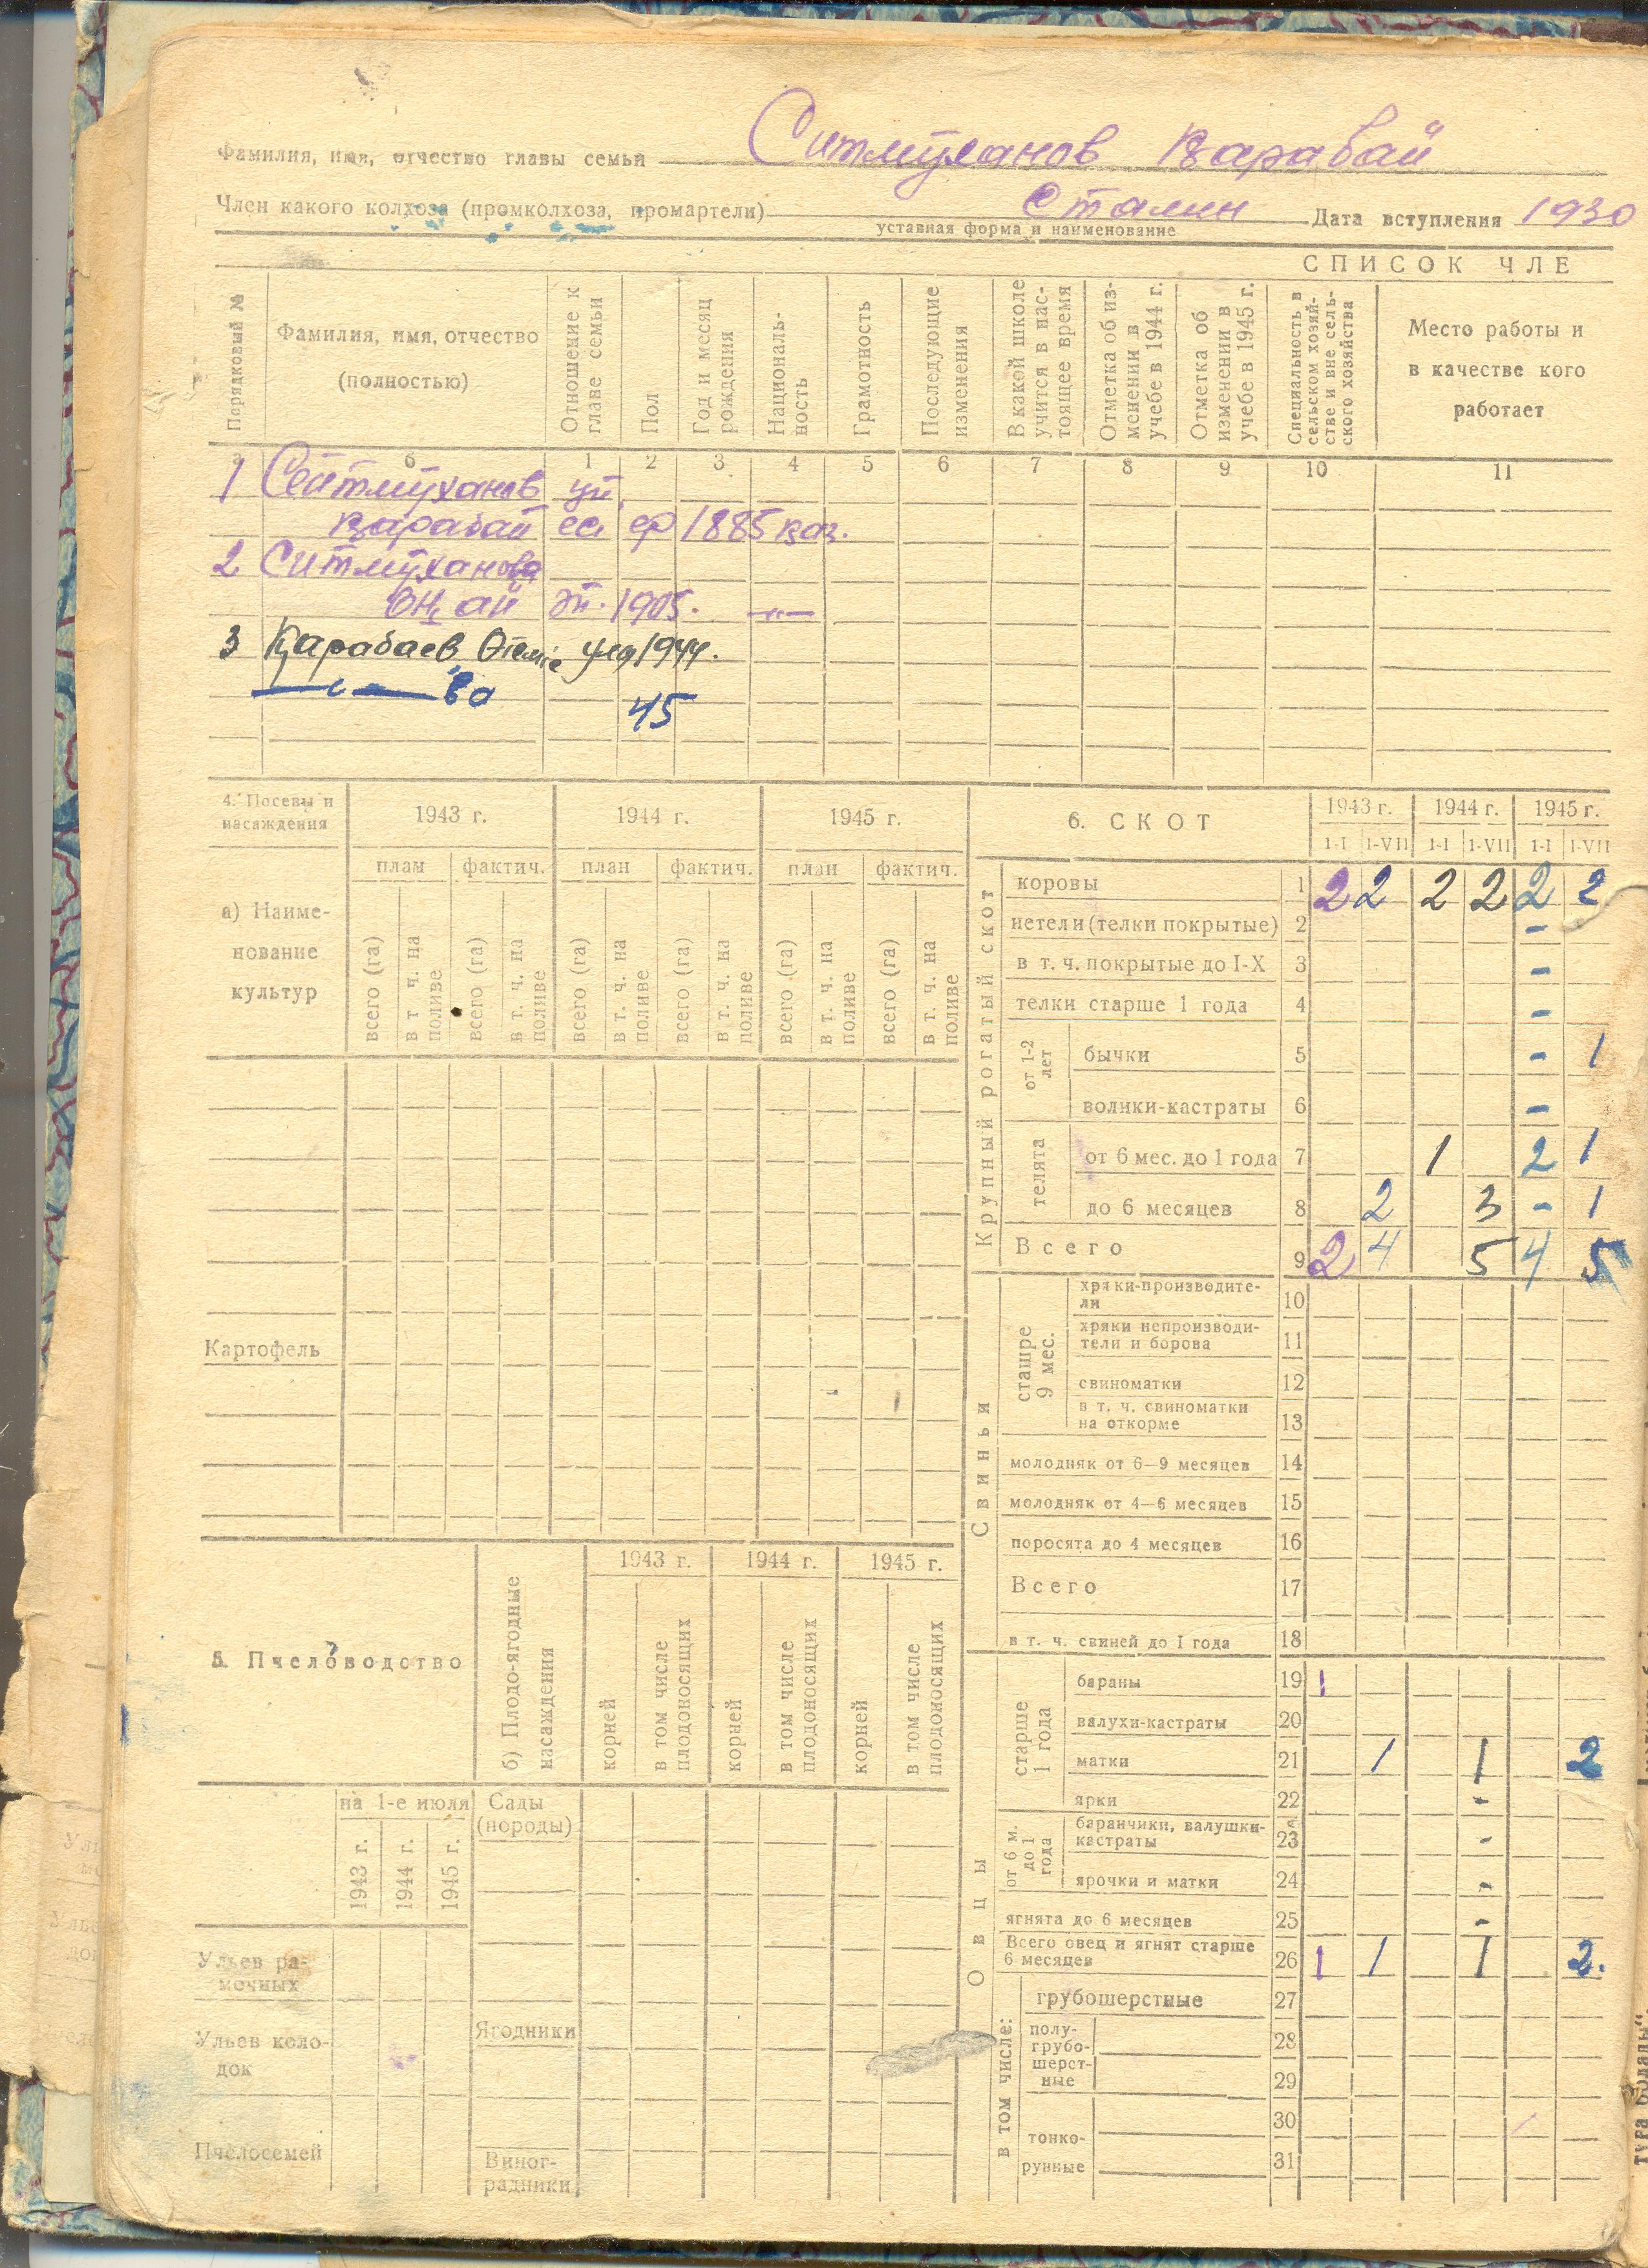 Фамилия, имя, отчество главы семьи Ситмуханов Қарабай
Член какого колхоза (промколхоза, промартели) Сталин Дата вступления 1930
уставная форма и наименование
СПИСОК ЧЛЕ
Порядковый №
Фамилия, имя, отчество (полностью)
Отношение к главе семьи
Пол
Год и месяц рождения
Националь-ность
Грамотность
Последующие изменения
В какой школе учится в нас-тоящее время
Отметка об из-менении в учебе в 1944 г.
Отметка об изменении в учебе в 1945 г.
Специальность в сельском хозяй-стве и вне сель-ского хозяйства
Место работы и в качестве кого работает
б 1 2 3 4 5 6 7 8 9 10 11
1 Сейтмуханов үй
Қарабай есі ер 1885 қаз.
2 Ситмуханова
1905. —"—
3 Қарабаев ұлы 1944.
—"— ва 45
4. Посевы и насаждения
1943 г. 1944 г. 1945 г.
плам фактич. план фактич. план фактич.
а) Наиме-
нование
культур
всего (га) в т ч. на поливе всего (га) в т. ч. на поливе всего (га) в т. ч. на поливе всего (га) в т. ч. на поливе всего (га) в т. ч. на поливе всего (га) в т. ч. на поливе
Картофель
5. Пчеловодство
б) Плодо-ягодные насаждения
1943 г. 1944 г. 1945 г.
корней в том числе плодоносящих корней в том числе плодоносящих корней в том числе плодоносящих
на 1-е июля
1943 г. 1944 г. 1945 г.
Сады
(породы)
Ульев ра-
мочных
Ульев коло-
док
Ягодники
Пчелосемей
Виног-
радники
6. СКОТ
1943 г. 1944 г. 1945 г.
1-I 1-VII 1-I 1-VII 1-I 1-VII
Крупный рогатый скот
коровы 1 2 2 2 2 2 2
нетели (телки покрытые) 2 -
в т. ч. покрытые до I-X 3 -
телки старше 1 года 4 -
от 1-2 лет
бычки 5 - 1
волики-кастраты 6 -
телята
от 6 мес. до 1 года 7 1 2 1
до 6 месяцев 8 2 3 - 1
Всего 9 2 4 5 4 5
Свиньи
сташре 9 мес.
хряки-производите-
ли 10
хряки непроизводи-
тели и борова 11
свиноматки 12
в т. ч. свиноматки
на откорме 13
молодняк от 6—9 месяцев 14
молодняк от 4—6 месяцев 15
поросята до 4 месяцев 16
Всего 17
в т. ч. свиней до I года 18
Овцы
старше 1 года
бараны 19 1
валухи-кастраты 20
матки 21 1 1 2
ярки 22 -
от 6 м. до 1 года
баранчики, валушки-
кастраты 23 -
ярочки и матки 24 -
ягнята до 6 месяцев 25 -
Всего овец и ягнят старше
6 месяцев 26 1 1 1 2.
в том числе:
грубошерстные 27
полу-
грубо- 28
шерст-
ные 29
30
тонко-
рунные 31